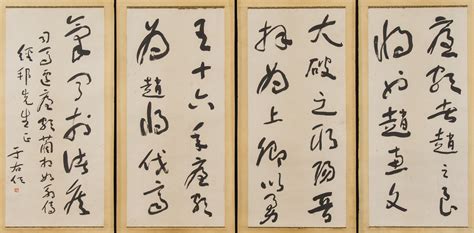 廉頗者趙之良
將也趙惠文
大破之取陽晉
拜為上卿以勇
王十六年廉頗
為趙將伐齊
氣聞於諸侯
司馬遷廉頗藺相如列傳
經邦先生正 于右任